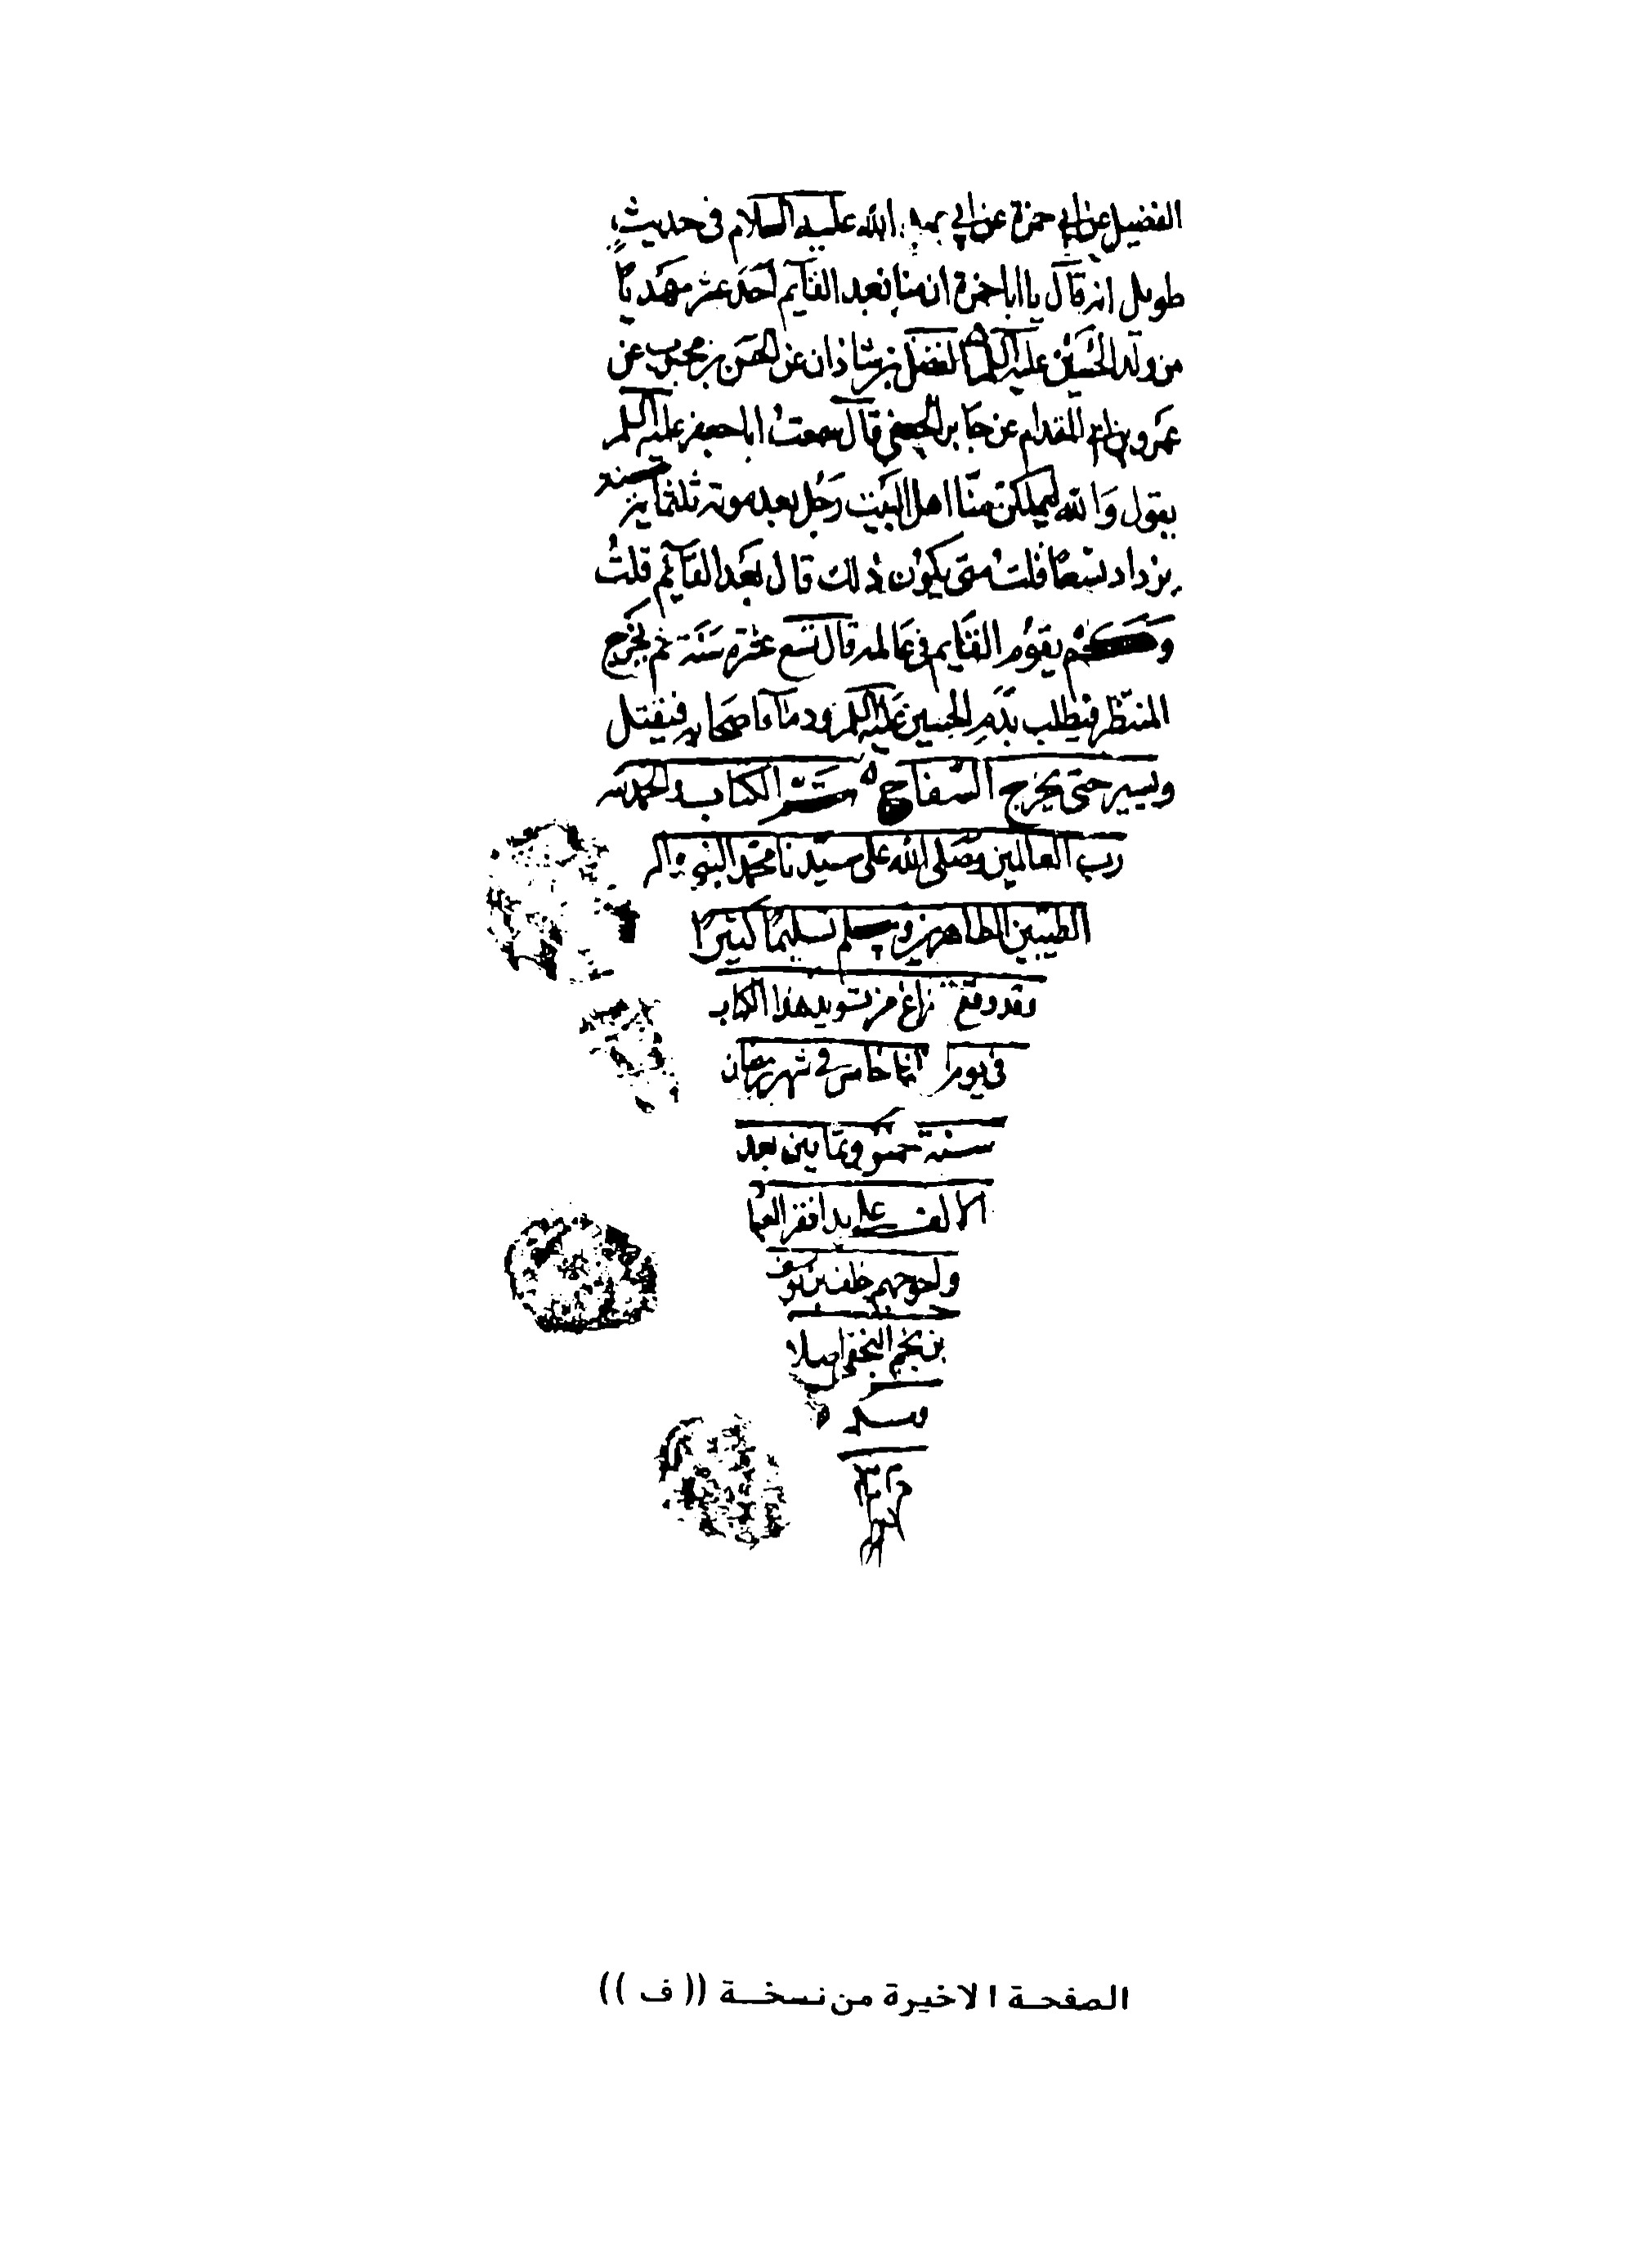 الفضيل عن ابي حمزة عن ابي عبد الله عليه السلام في حديث
طويل انه قال يا ابا حمزة ان منا بعد القآيم احد عشر مهديا
من ولد الحسين عليه السلم الفضل بن شاذان عن الحسن بن محبوب عن
عمرو بن ابي المقدام عن جابر الجعفي قال سمعت ابا جعفر عليه السلم
يقول والله ليملكن منا اهل البيت رجل بعد موته ثلثماية سنة
يزداد تسعا قلت متى يكون ذلك قال بعد القآئم قلت
وكم يقوم القايم في عالمه قال تسع عشرة سنة ثم يخرج
المنتظر فيطلب بدم الحسين عليه السلم ودمآء اصحابه فيقتل
ويسير حتى يخرج السفاح تم الكتاب والحمد لله
رب العالمين وصلى الله على سيدنا محمد النبي واله
الطيبين الطاهرين وسلم تسليما كثيرا
وقد وقع فراغ من تسويد هذا الكتاب
في يوم خامس في شهر رمضان
سنة خمس وثمانين بعد
الالف على يد افقر العباد
واحوجهم خلف بن يوسف
بن نجم النجفي اصلا
ومسكنا
الصفحة الاخيرة من نسخة (( ف ))